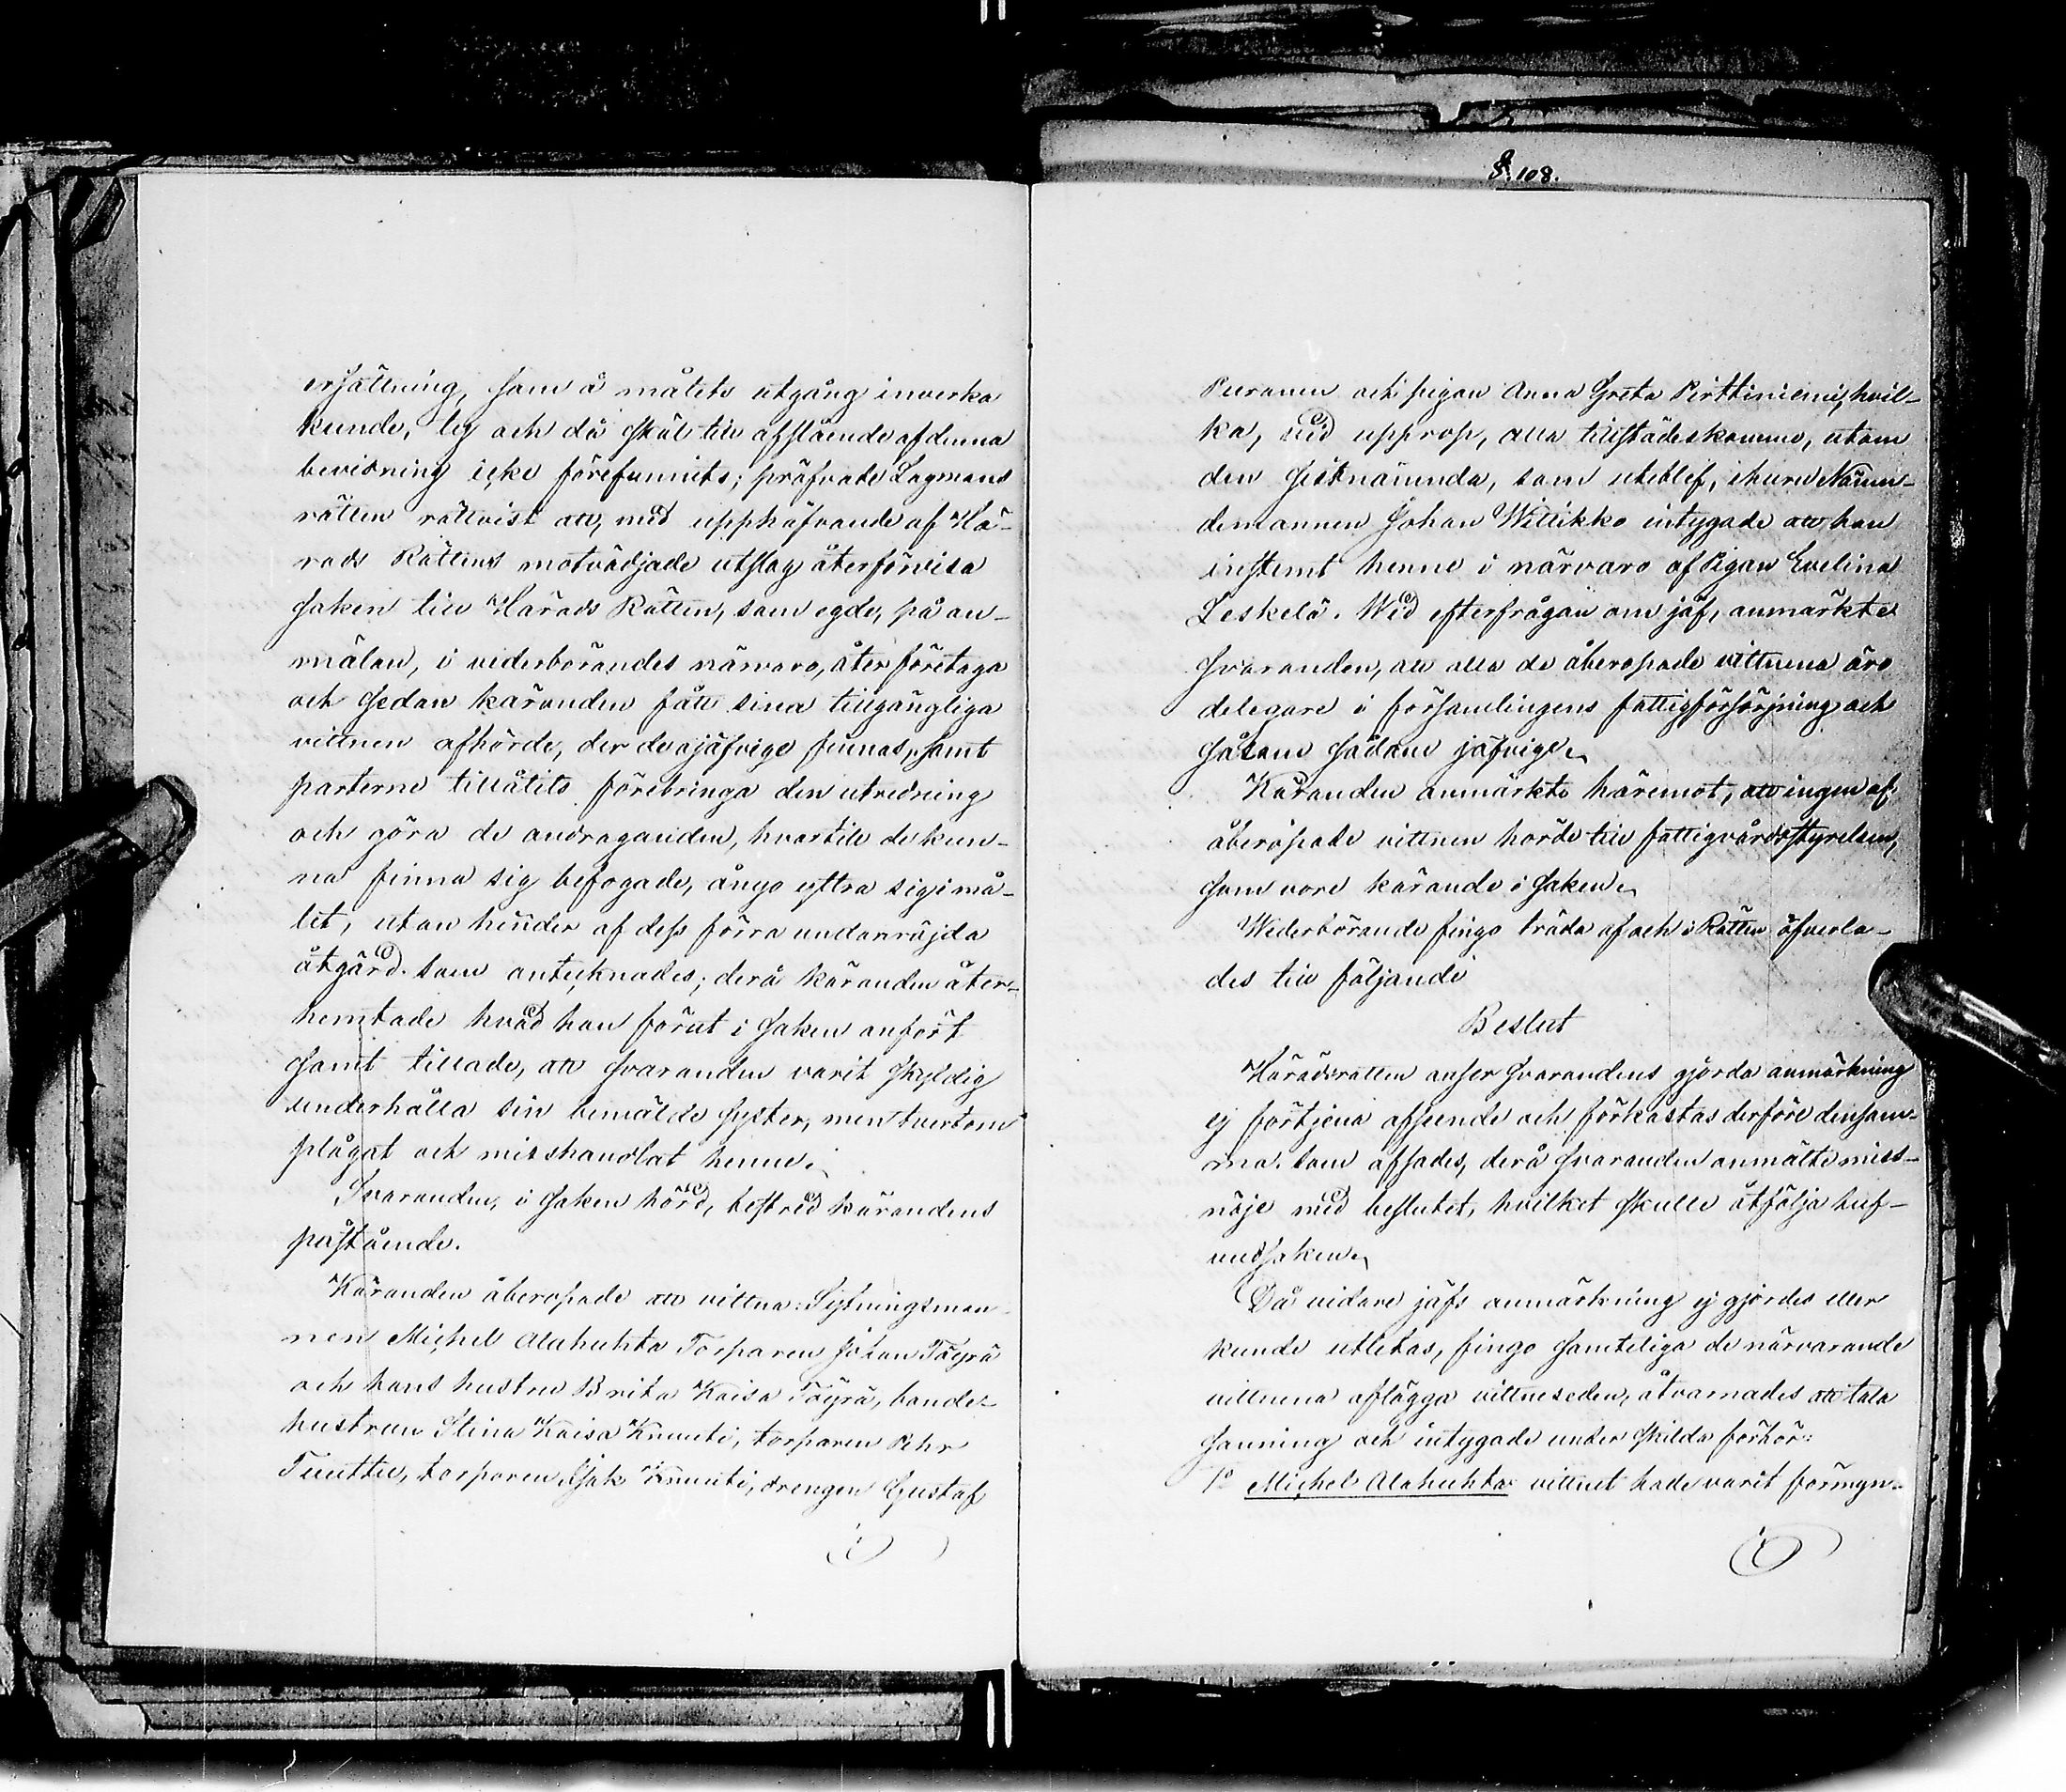 ersättning, som å målets utgång inverka
kunde, ty och då skäl till afslående af denna
bevisning icke förefunnits; pröfvade Lagmans
rätten rättvist att, med upphäfvande af Hä-
rads Rättens motvädjade utslag återförvisa
saken till Härads Rätten, som egde, på an-
mälan, i vederbörandes närvaro, åter företaga
och sedan käranden fått sina tillgängliga
vittnen afhörde, der de ojäfvige finnas, samt
parterne tillåtits förebringa den utredning
och göra de andraganden, hvartill de kun-
na finna sig befogade, ånyo yttra sig i må-
let, utan hinder af dess förra undanröjda
åtgärd. som antecknades; derå käranden åter-
hemtade hvad han förut i saken anfört
samt tillade, att svaranden varit skyldig
underhålla sin bemälde syster, men tvertom
plågat och misshandlat henne.
Svaranden, i saken hörd, bestred kärandens
påstående.
Käranden åberopade att vittna: Sytningsman-
nen Michel Alahuhta Torparen Johan Töyrä
och hans hustru Brita Kaisa Töyrä, bonde-
hustrun Stina Kaisa Knuuti, torparen Pehr
Tuuttu, torparen Isak Knuuti, drengen Gustaf
§. 108.
Puranen och pigan Anna Greta Pirttiniemi, hvil-
ka, vid upprop, alla tillstädeskommo, utom
den sistnämnda, som uteblef, ehuru Näm-
demannen Johan Wittikko intygade att han
instemt henne i närvaro af Pigan Evelina
Leskelä. Wid efterfrågan om jäf, anmärkte
svaranden, att alla de åberopade vittnena äro
delegare i församlingens fattigförsörjning och
såsom sådane jäfvige.
Käranden anmärkte häremot, att ingen af
åberopade vittnen hörde till fattigvårdsstyrelsen,
som vore kärande i saken.
Wederbörande fingo träda af och i Rätten öfverla-
des till följande
Beslut
Häradsrätten anser svarandens gjorda anmärkning
ej förtjena afseende och förkastas derföre densam-
ma. som afsades, derå svaranden anmälte miss-
nöje med beslutet, hvilket skulle åtfölja huf-
vudsaken.
Då vidare jäfs anmärkning ej gjordes eller
kunde utletas, fingo samteliga de närvarande
vittnena aflägga vittneseden, åtvarnades att tala
sanning och intygade under skilda förhör:
1o Michel Alahuhta: vittnet hade varit förmyn-